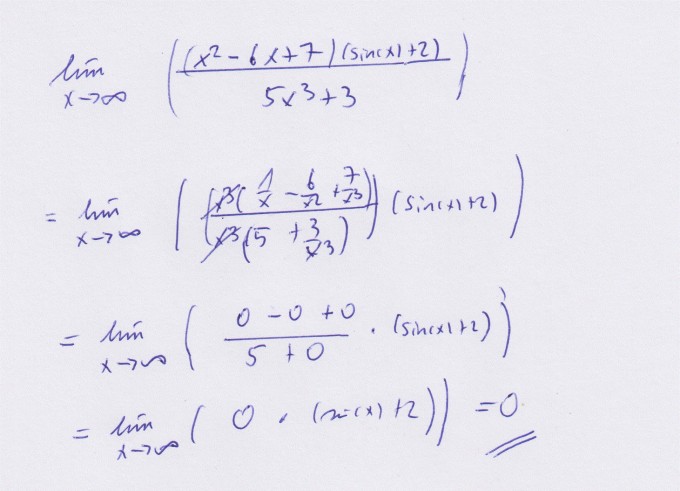 lim x→∞ ( (x² - 6x + 7)(sin(x) + 2) / 5x³ + 3 )
= lim x→∞ ( ( x³( 1/x - 6/x² + 7/x³ ) / x³( 5 + 3/x³ ) ) (sin(x) + 2) )
= lim x→∞ ( 0 - 0 + 0 / 5 + 0 · (sin(x) + 2) )
= lim x→∞ ( 0 · (sin(x) + 2) ) = 0